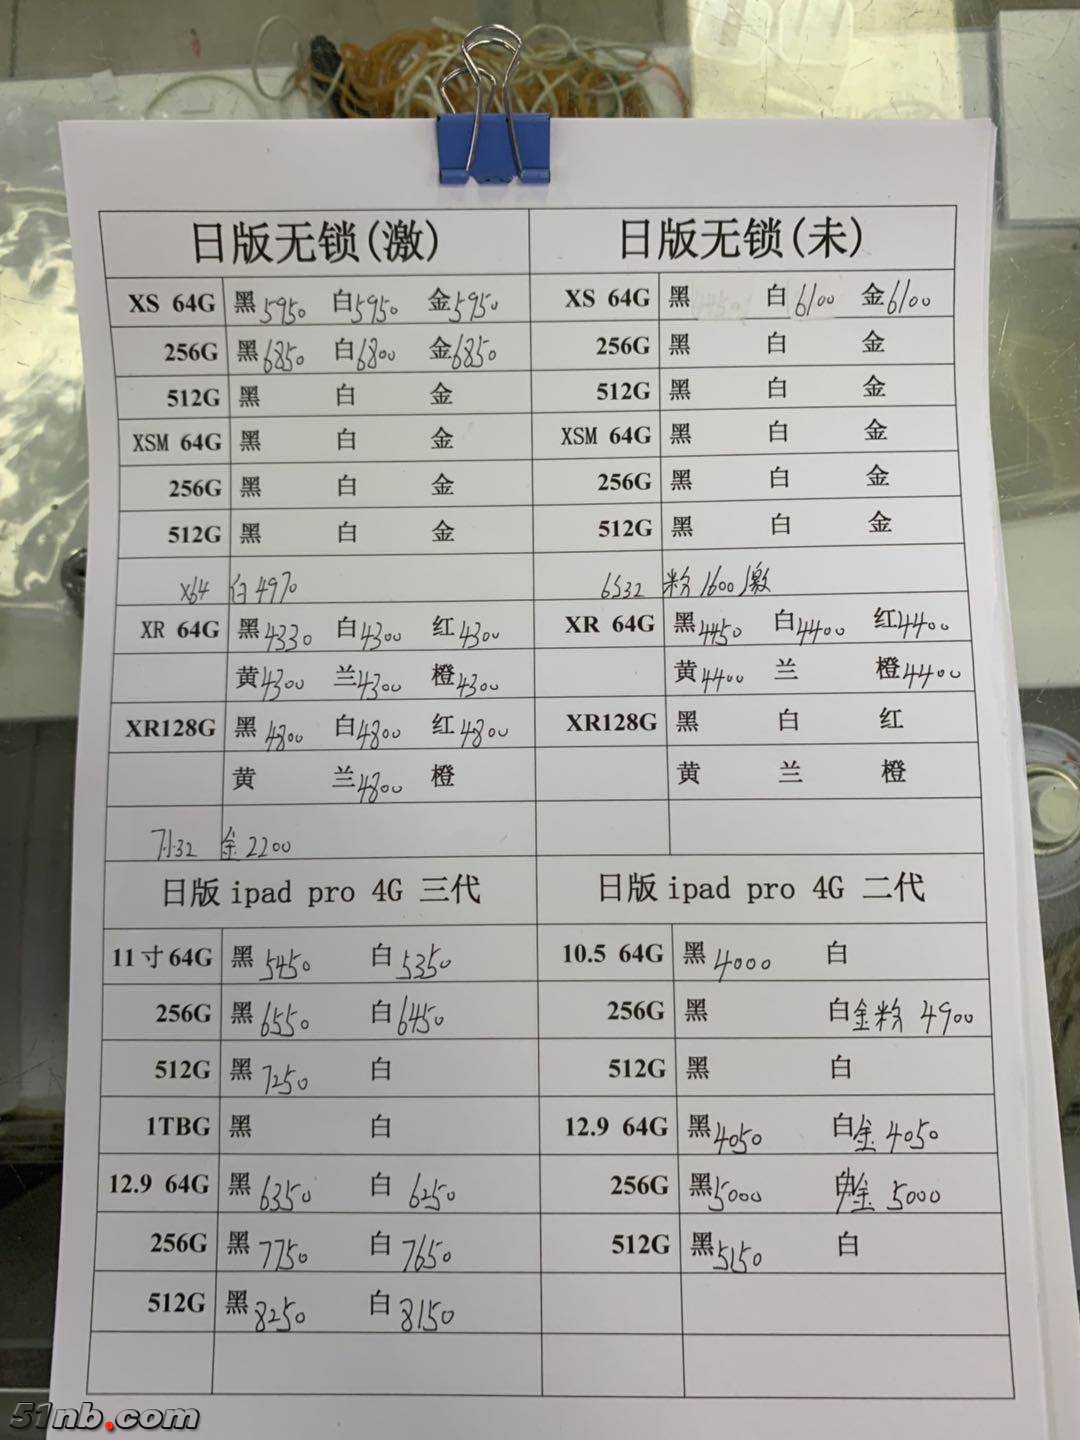 日版无锁(激) 日版无锁(未)
XS 64G 黑5950 白5950 金5950 XS 64G 黑 白6100 金6100
256G 黑6850 白6800 金6850 256G 黑 白 金
512G 黑 白 金 512G 黑 白 金
XSM 64G 黑 白 金 XSM 64G 黑 白 金
256G 黑 白 金 256G 黑 白 金
512G 黑 白 金 512G 黑 白 金
X64 白4970 6S32 粉1600激
XR 64G 黑4330 白4300 红4300 XR 64G 黑4450 白4400 红4400
黄4300 兰4300 橙4300 黄4400 兰 橙4400
XR128G 黑4800 白4800 红4800 XR128G 黑 白 红
黄 兰4800 橙 黄 兰 橙
金2200
日版ipad pro 4G 三代 日版ipad pro 4G 二代
11寸64G 黑5450 白5350 10.5 64G 黑4000 白
256G 黑6550 白6450 256G 黑 白金粉 4900
512G 黑7250 白 512G 黑 白
1TBG 黑 白 12.9 64G 黑4050 白金 4050
12.9 64G 黑6350 白 6250 256G 黑5000 金 5000
256G 黑7750 白7650 512G 黑5150 白
512G 黑8250 白8150
51nb.com